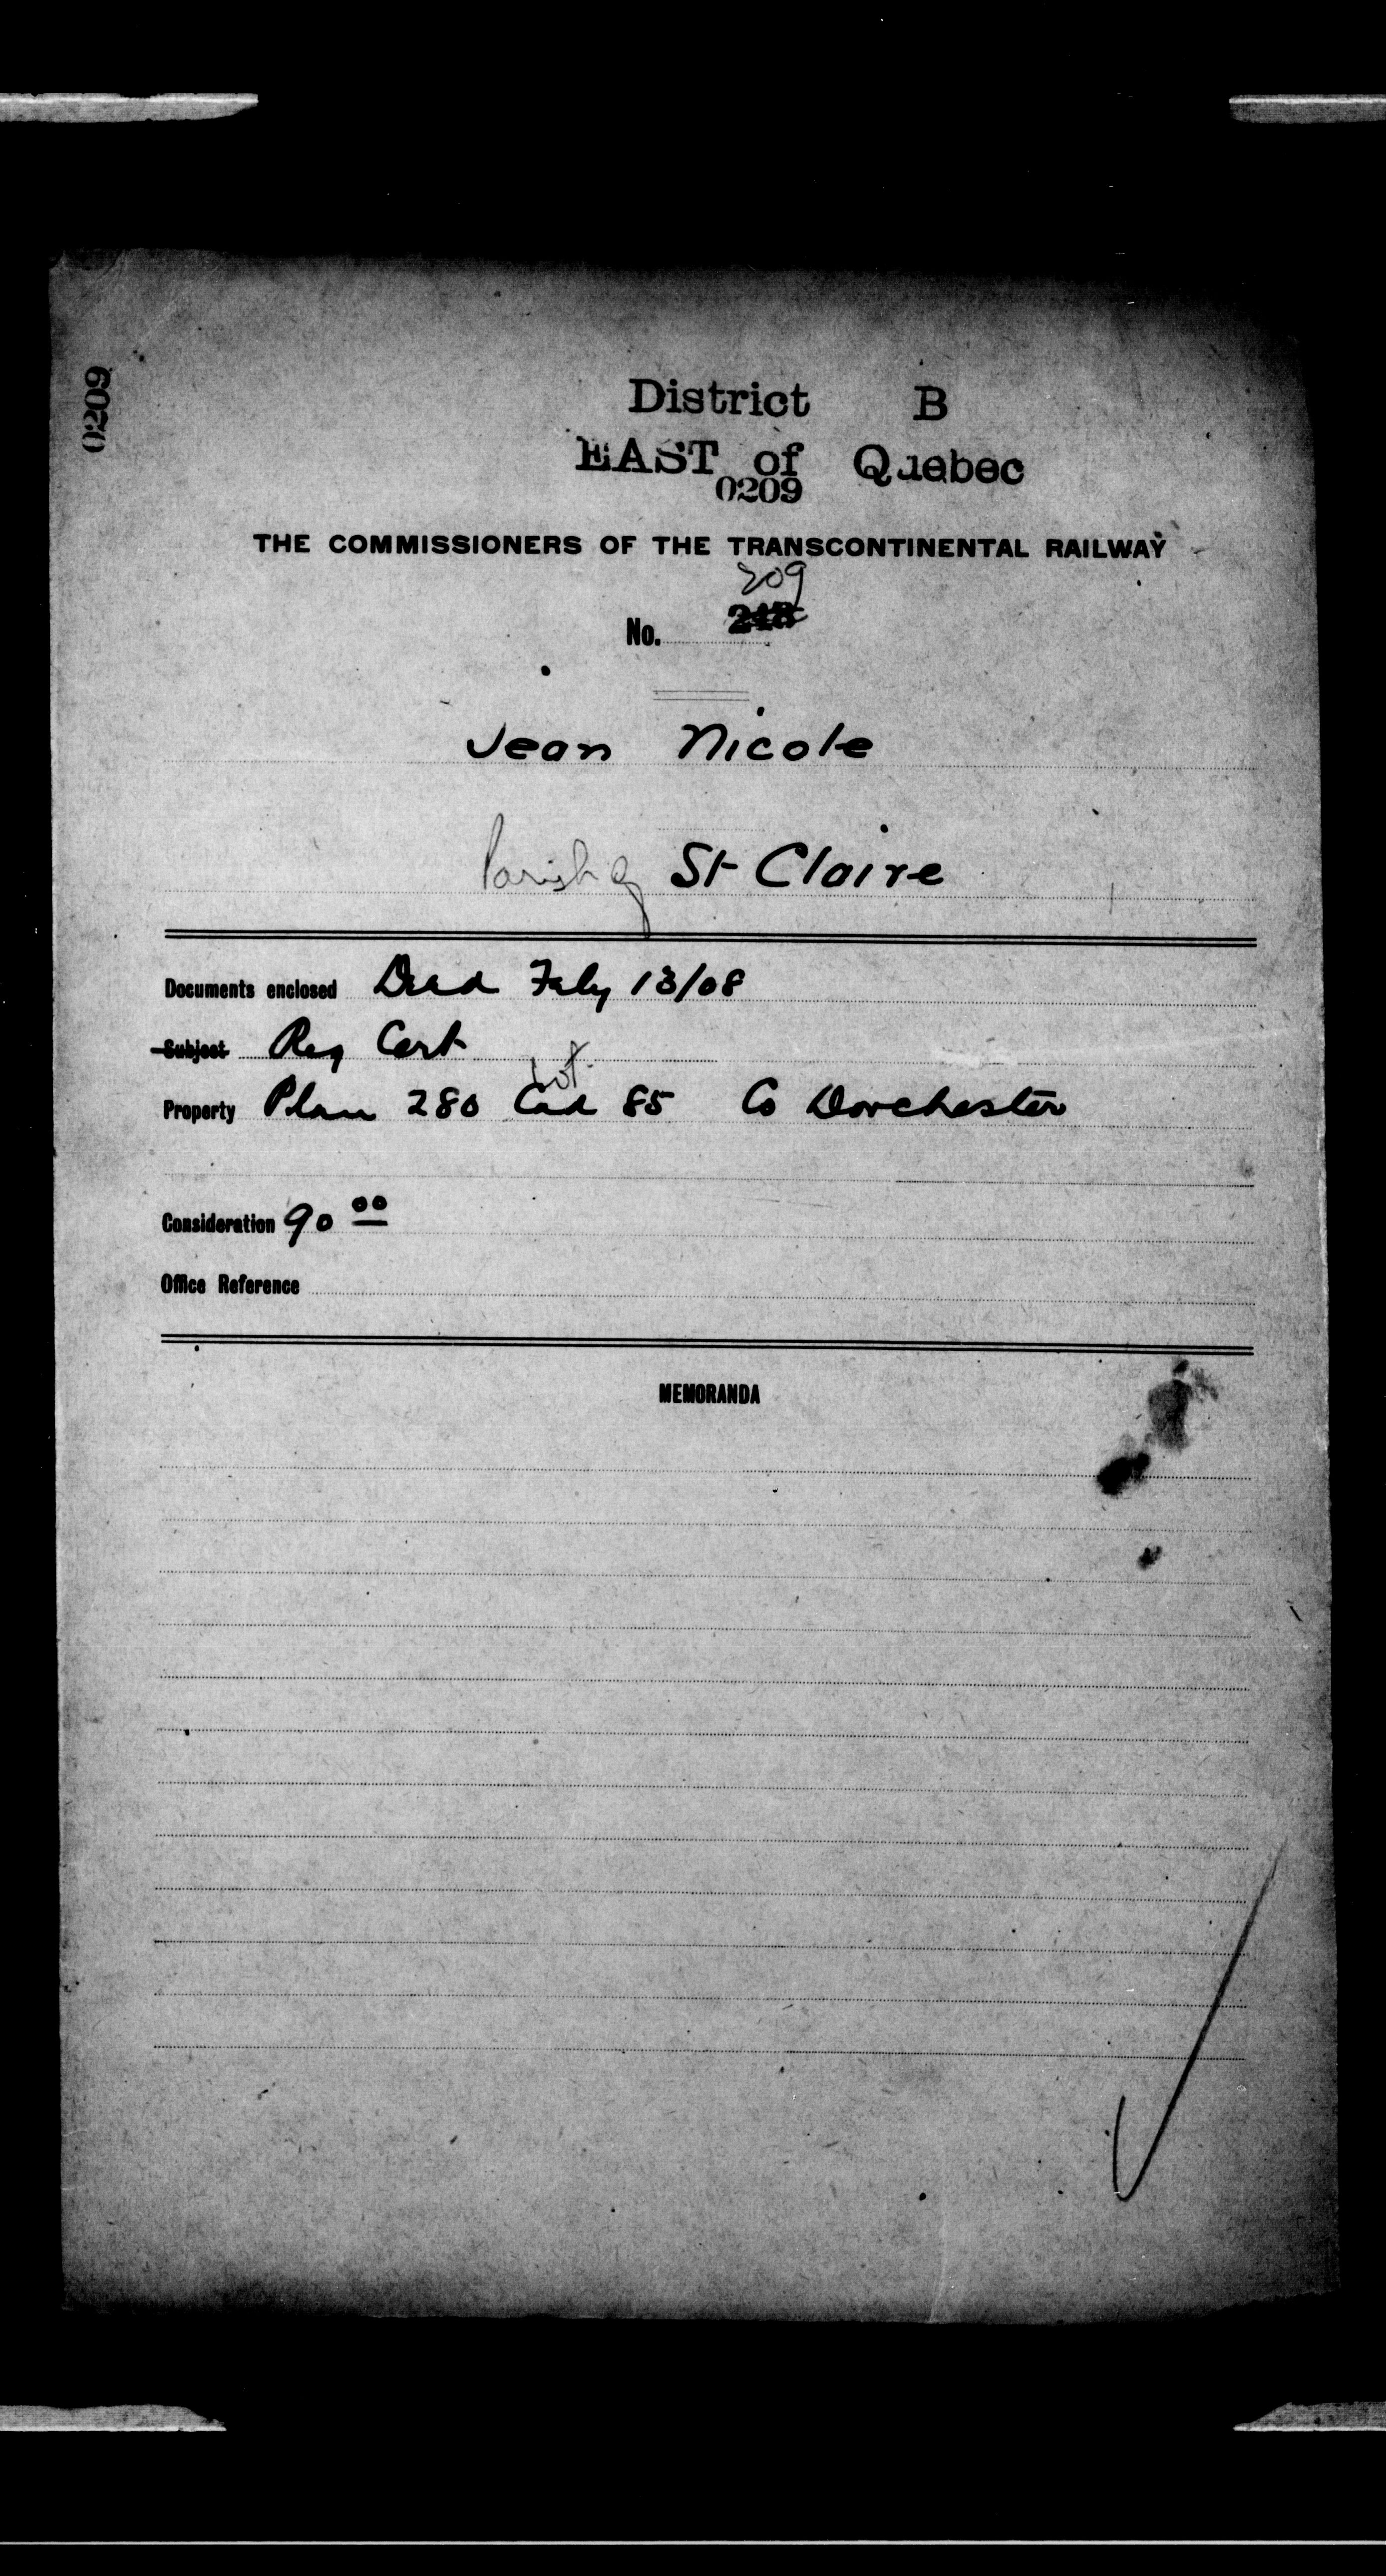 0209
District B
EAST of Quebec
0209
THE COMMISSIONERS OF THE TRANSCONTINENTAL RAILWAY
209
No.
Jean Nicole
Parish of St Claire
Documents enclosed Deed Feby 13/08
Subject Reg Cert
Lot
Property Plan 280 Cad 85 Co Dorchester
Consideration 90 00
Office Reference
MEMORANDA